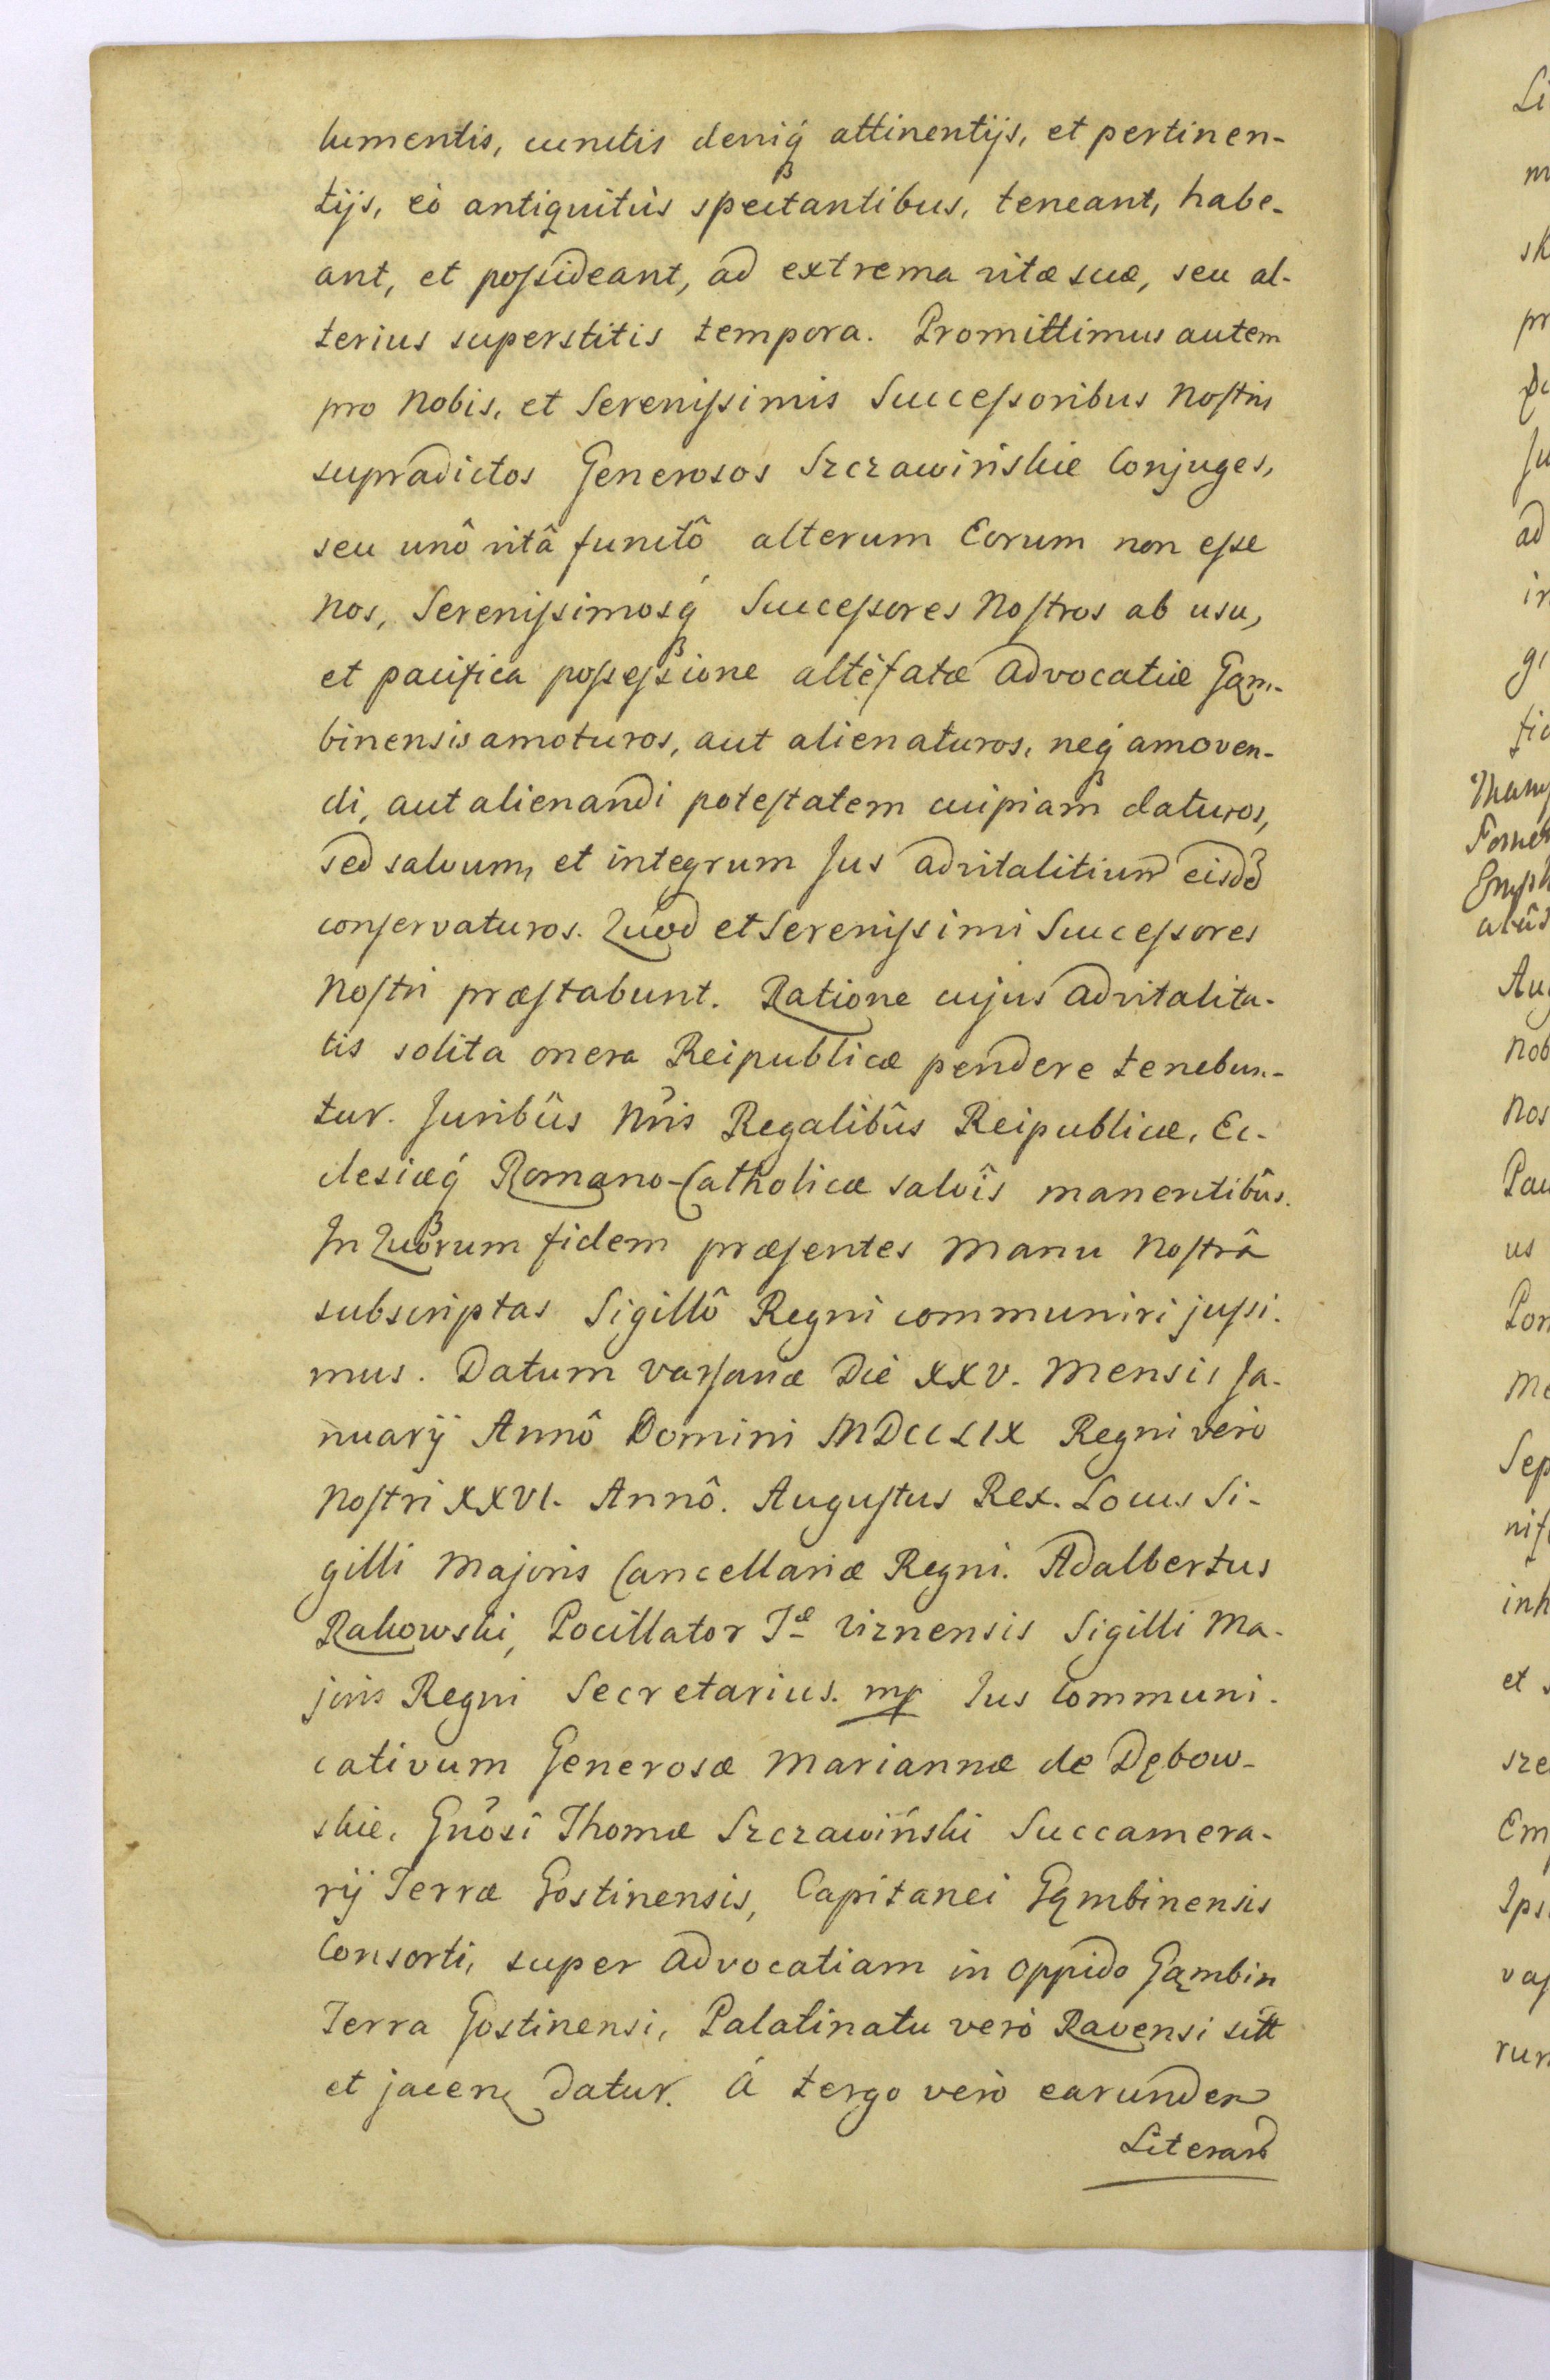 lumentis, cunctis deniq́ attinentijs, et pertinen-
tijs, eò antiquitùs spectantibus, teneant, habe-
ant, et possideant, ad extrema vitæ suæ, seu al-
terius superstitis tempora. Promittimus autem
pro Nobis, et Serenissimis Successoribus Nostris
supradictos Generosos Szczawińskie Conjuges,
seu unô vitâ functô alterum Eorum non esse
Nos, Serenissimosq́ Successores Nostros ab usu,
et pacifica possessione altèfatæ Advocatiæ Gąm-
binensis amoturos, aut alienaturos, neq́ amoven-
di, aut alienandi potestatem cuipiam daturos,
sed salvum, et integrum Jus advitalitium eisdē
conservaturos. Quod et Serenissimi Successores
Nostri præstabunt. Ratione cujus advitalita-
tis solita onera Reipublicæ pendere tenebun-
tur. Juribûs Nr̃is Regalibûs Reipublicæ, Ec-
clesiæq́ Romano-Catholicæ salvîs manentibûs.
In Quorum fidem præsentes Manu Nostrâ
subscriptas Sigillô Regni communiri jussi-
mus. Datum Varsaviæ Die XXV. Mensis Ja-
nuarij Annô Domini MDCCLIX Regni verò
Nostri XXVI. Annô. Augustus Rex. Locus Si-
gilli Majoris Cancellariæ Regni. Adalbertus
Rakowski, Pocillator Tæ Viznensis Sigilli Ma-
joris Regni Secretarius. mp Jus Communi-
cativum Generosæ Mariannæ de Dębow-
skie, Gñosi Thomæ Szczawiński Succamera-
rij Terræ Gostinensis, Capitanei Gąmbinensis
Consorti, super Advocatiam in Oppido Gąmbin
Terra Gostinensi, Palatinatu verò Ravensi sitt
et jacen datur. À tergo verò earundem
Literarū